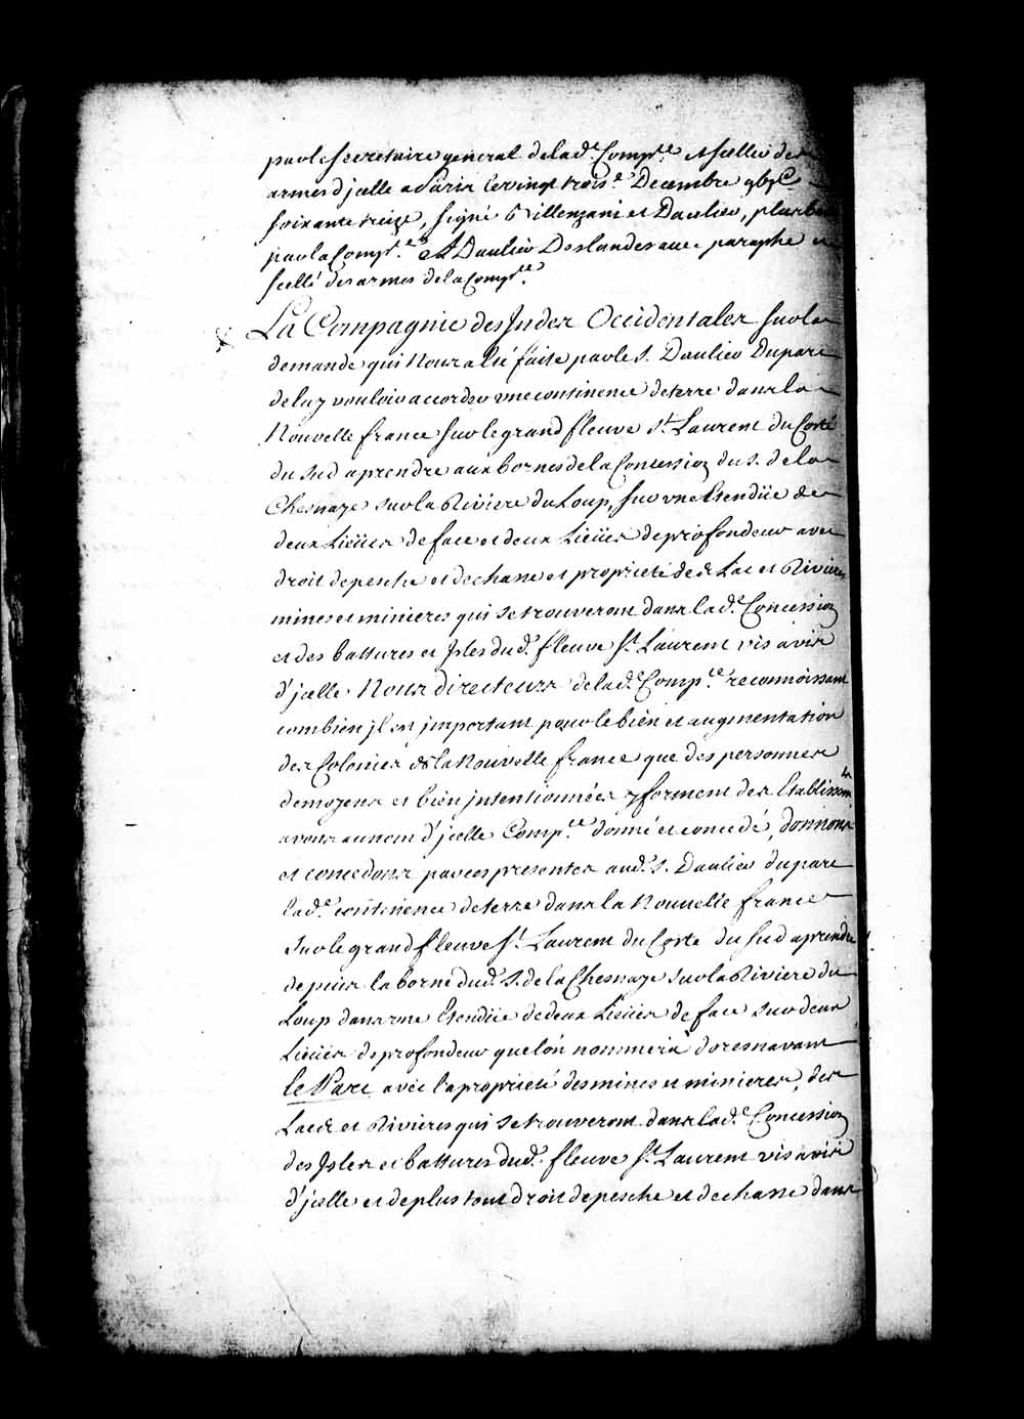 par le Secretaire general de lad.e Comp.ie et scellée des
armes d'jcelle a Paris le vingt trois.e Decembre gbjC
soixante treize, signé Daulier, plus bas
par la Comp.ie Daulier Deslandes avec paraphe et
scellé des armes de la Comp.ie
La Compagnie des Indes Occidentales sur la
demande qui Nous a été faite par le S. Daulier Duparc
de luy vouloir accorder une continence de terre dans la
Nouvelle france sur le grand fleuve S.t Laurent du Costé
du sud a prendre aux bornes de la Concession du S. de la
Chesnaye sur la Riviere du Loup, sur une Etendüe de
deux Lieües de face et deux Lieües de profondeur avec
droit de pesche et de chasse et proprieté des Lac et Rivieres
mines et minieres qui se trouveront dans lad.e Concession
et des battures et Isles dud. fleuve S.t Laurent vis a vis
d'jcelle Nous directeurs de lad.e Comp.ie reconnoissant
combien jl est jmportant pour le bien et augmentation
des Colonies de la Nouvelle france que des personnes
de moyens et bien jntentionnées y forment des Etablissem.ts
avons au nom d'jcelle Comp.ie donné et concedé, donnons
et concedons par ces presentes aud. S. Daulier duparc
lad.e continence de terre dans la Nouvelle france
sur le grand fleuve S.t Laurent du Coste du sud a prendre
depuis la borne dud. S. de la Chesnaye sur la Riviere du
Loup dans une Etendüe de deux Lieües de face sur deux
Lieües de profondeur que lón nommera doresnavant
le Parc avec la proprieté des mines et minieres, des
Lacs et Rivieres qui se trouveront dans lad.e Concession
des Isles et battures dud. fleuve S.t Laurent vis a vis
d'jcelle et de plus tout droit de pesche et de chasse dans